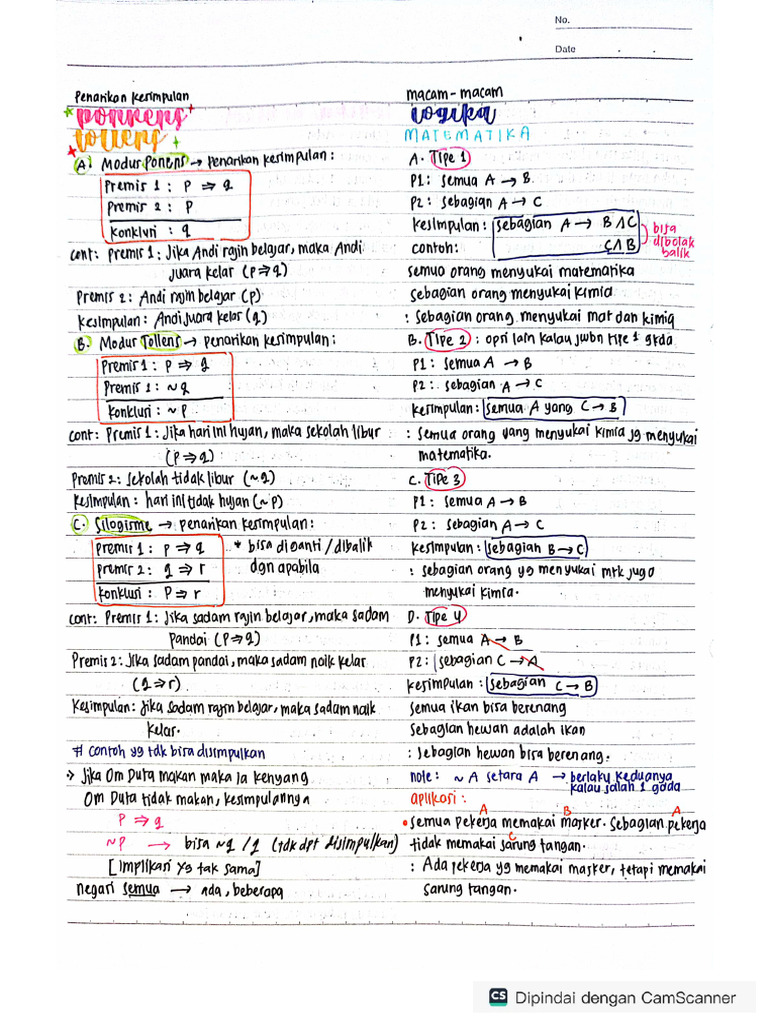 No.
Date
Penarikan kesimpulan
ponens
tollens
A. Modus Ponens → Penarikan kesimpulan:
Premis 1 : P ⇒ q
Premis 2 : P
Konklusi : q
cont: Premis 1: Jika Andi rajin belajar, maka Andi
juara kelas (P⇒q)
Premis 2: Andi rajin belajar (P)
Kesimpulan: Andi juara kelas (q)
B. Modus Tollens → penarikan kesimpulan:
Premis 1 : P ⇒ q
Premis 1 : ~q
Konklusi : ~P
cont: Premis 1: Jika hari ini hujan, maka sekolah libur
(P⇒q)
Premis 2: Sekolah tidak libur (~q)
Kesimpulan : hari ini tidak hujan (~P)
C. Silogisme → penarikan kesimpulan:
Premis 1 : P ⇒ q
Premis 2 : q ⇒ r
Konklusi : P ⇒ r
* bisa diganti / dibalik
dgn apabila
cont: Premis 1: Jika sadam rajin belajar, maka sadam
Pandai (P⇒q)
Premis 2: Jika sadam pandai, maka sadam naik kelas
(q⇒r)
Kesimpulan: Jika sadam rajin belajar, maka sadam naik
kelas.
# contoh yg tdk bisa disimpulkan
> Jika Om Duta makan maka ia kenyang
Om Duta tidak makan, kesimpulannya
P ⇒ q
~P → bisa ~q / q (tdk dpt disimpulkan)
[implikasi yg tak sama]
negasi semua → ada, beberapa
macam-macam
logika
MATEMATIKA
A. Tipe 1
P1: semua A → B.
P2: sebagian A → C
kesimpulan: sebagian A → B∧C
C∧B
bisa
dibolak
balik
contoh:
semua orang menyukai matematika
Sebagian orang menyukai kimia
: Sebagian orang menyukai mat dan kimia
B. Tipe 2 : opsi lain kalau jwbn tipe 1 gkda
P1: semua A → B
P2: sebagian A → C
kesimpulan: Semua A yang C → B
: Semua orang yang menyukai kimia jg menyukai
matematika.
C. Tipe 3
P1: semua A → B
P2: sebagian A → C
kesimpulan: sebagian B → C
: sebagian orang yg menyukai mtk juga
menyukai kimia.
D. Tipe 4
P1: semua A → B
P2: sebagian C → A
kesimpulan: Sebagian C → B
Semua ikan bisa berenang
Sebagian hewan adalah ikan
: Sebagian hewan bisa berenang.
note: ~A setara A → berlaku keduanya
kalau salah 1 gada
aplikasi :
A B A
• Semua Pekerja memakai masker. Sebagian pekerja
C
tidak memakai sarung tangan.
: Ada pekerja yg memakai masker, tetapi memakai
sarung tangan.
CS Dipindai dengan CamScanner